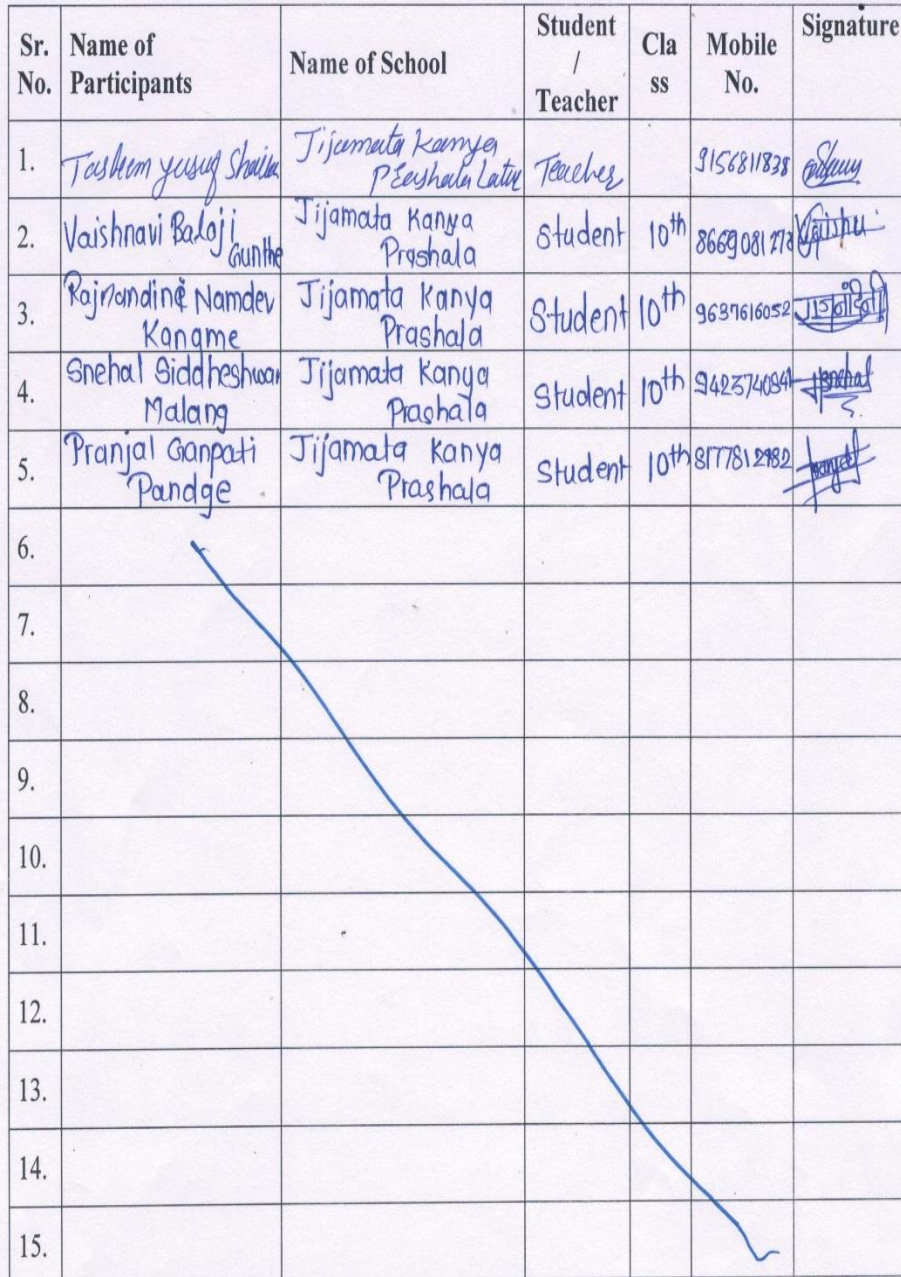 Sr. No. Name of Participants Name of School Student / Teacher Cla ss Mobile No. Signature
1. Yusuf Jijamata Kanya Latur Teacher 9156811838
2. Vaishnavi Balaji Gunthe Jijamata Kanya Prashala Student 10th 8669081278 Vaishu
3. Rajnandini Namdev Kangme Jijamata Kanya Prashala Student 10th 9637616052 राजनंदिनी
4. Snehal Siddheshwar Malang Jijamata Kanya Prashala Student 10th Snehal
5. Pranjal Ganpati Pandge Jijamata Kanya Prashala Student 10th 8177812982
6.
7.
8.
9.
10.
11.
12.
13.
14.
15.